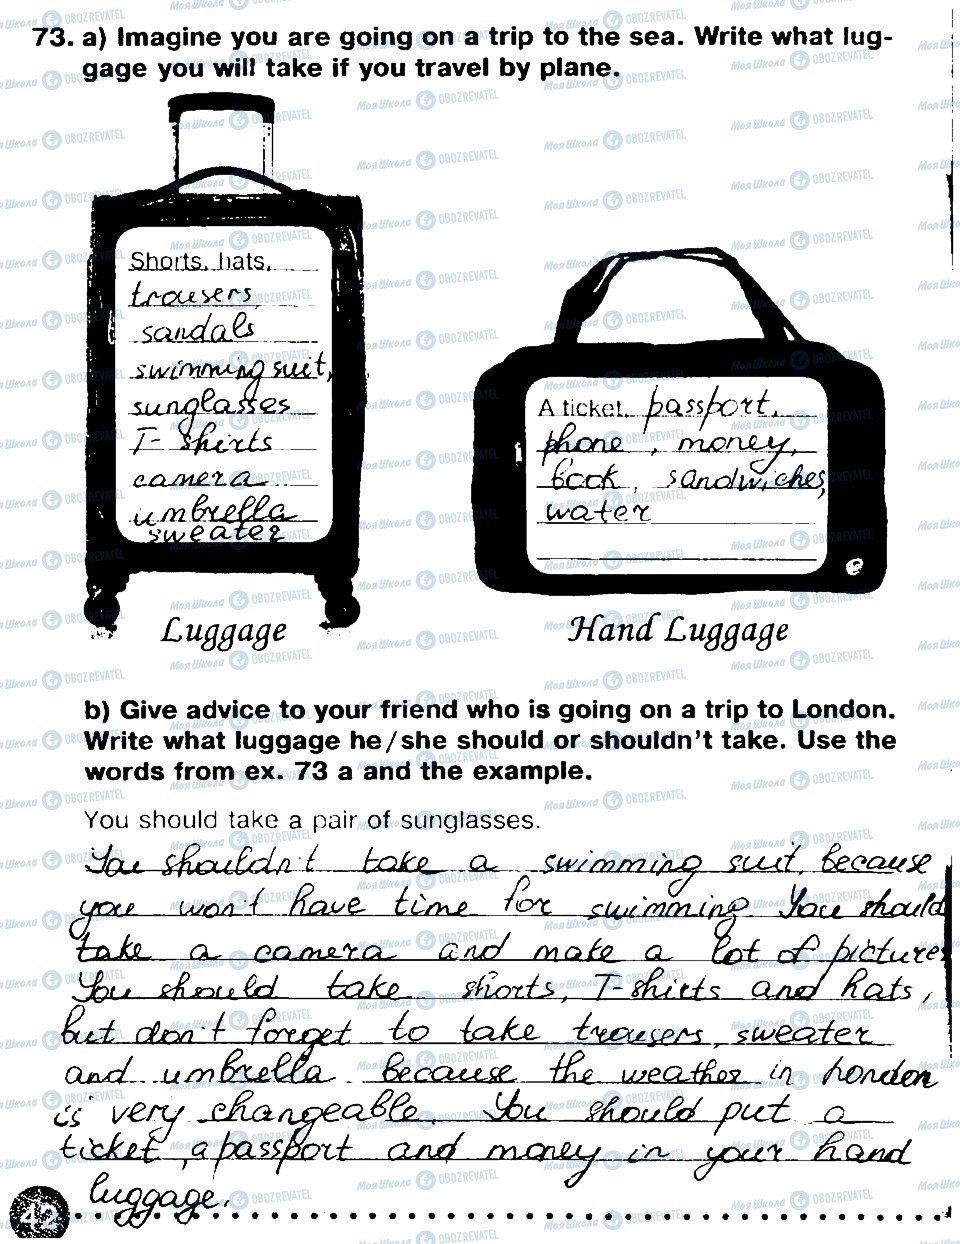 73. a) Imagine you are going on a trip to the sea. Write what lug-
gage you will take if you travel by plane.
Shorts, hats,
trousers,
sandals
swimming suit,
sunglasses
T-shirts
camera
umbrella
sweater
Luggage
A ticket, passport,
phone, money,
book, sandwiches,
water
Hand Luggage
b) Give advice to your friend who is going on a trip to London.
Write what luggage he/she should or shouldn't take. Use the
words from ex. 73 a and the example.
You should take a pair of sunglasses.
You shouldn't take a swimming suit, because
you won't have time for swimming. You should
take a camera and make a lot of pictures
You should take shorts, T-shirts and hats,
but don't forget to take trousers, sweater
and umbrella because the weather in London
is very changeable. You should put a
ticket, a passport and money in your hand
luggage.
42
Моя Школа OBOZREVATEL